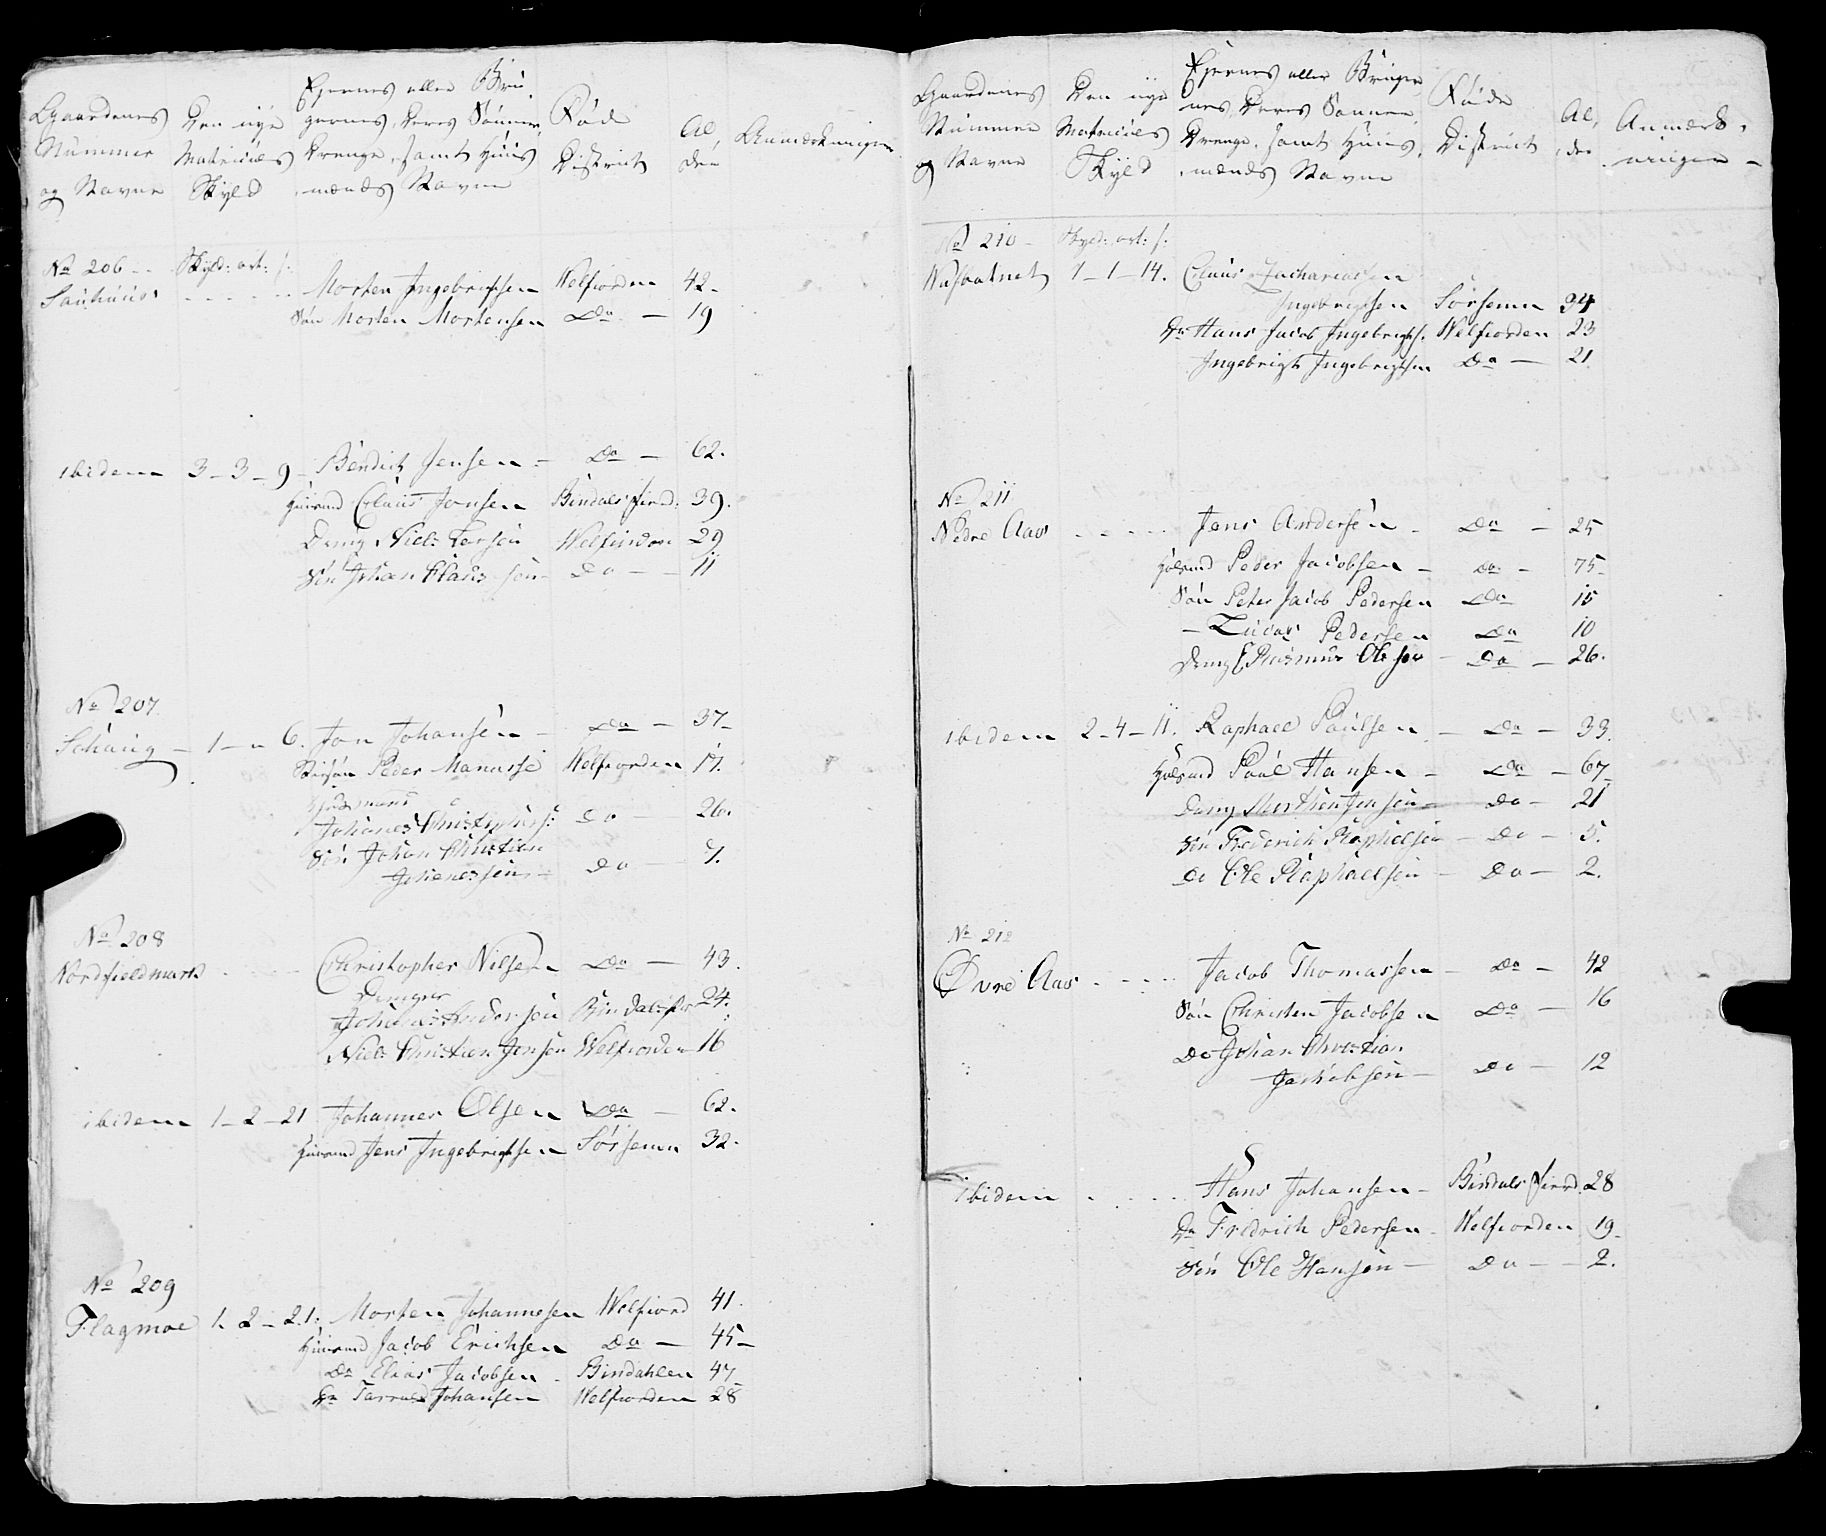 Gaardenes
Nummer
og Navne
Den nye
Matriculs
Skyld
Ejernes eller Bru-
gernes, Deres Sønner,
Drenge, samt Huus-
mænds Navne
Føde
District
Al-
der
Anmærkninger
No 206 -- Skyld: ort: s:
Sauhuus - - - - - Morten Ingebrigtsen Welfiorden 42-
Søn Morten Mortensen Do - 19
ibidem 3-3-9 - Bendict Jensen - Do - 62.
Huusmd Claus Jonsen Bindals fierd: 39.
Dreng Niels Larsen Welfiorden 29
Søn Johan Claus-søn - Do - - 11
No 207
Schaug - 1 - " 6. Jon Johansen - Do - 37-
Stifsøn Peder Manasse Welfiorden 17.
Huusmand
Johanes Christophers: Do - 26.
Søn Johan Christian
Johanessøn - Do - 7.
No 208
Nordfieldmark - - - - Christopher Nilsen Do - 43.
Drenger
Johanes Andersøn Bindalsfir 24.
Niels Christian Jensøn Welfiorden 16
ibidem 1-2-21 Johannes Olsen Do - 62.
Huusmd Jens Ingebrigtsen Sørsemn 32.
No 209
Flagmoe 1. 2 - 21. Morten Johannesen Welfiord 41.
Huusmd Jacob Erichsen Do - 45-
Do Elias Jacobsen - Bindahlen 47
Do Tarrald Johansen Welfiorden 28
Gaardenes
Nummer
og Navne
Den nye
Matriculs
Skyld
Ejernes eller Bruger-
nes, Deres Sønner,
Drenge, samt Huus-
mænds Navne
Føde
District
Al-
der
Anmærk-
ninger -
No 210 - Skyld: ort: s:
1-1-14. Claus Zachariassen
Ingebrigtsen Sørsemn 34
Do Hans Jacob Ingebrigts. Welfiorden 23
Ingebrigt Ingebrigtsen Do - 21.
No 211
Nedre Aas - - - - - Jens Andersen - Do - 25
Huusmd Peder Jacobsen - Do - 75-
Søn Peter Jacob Pedersen Do 15
- Lucas Pedersen Do 10
Dreng Rasmus Olsen - Do - 26.
ibidem 2-4-11. Raphael Paulsen - Do - 33.
Huusmd Paul Hansen - Do - 67-
Dreng Morthen Jensøn - Do - 21
Søn Frederich Raphelsøn - Do - 5.
Do Ole Raphaelsøn - Do - 2.
No 212
Øvre Aas - - - - - Jacob Thomassen - Do - 42
Søn Christen Jacobsen Do - 16
Do Johan Christian
Jachobsøn - Do - 12
ibidem - - - - Hans Johansen - Bindals fierd. 28
Do Fridrich Pedersen - Welfiorden 19-
Søn Ole Hansøn - Do - - 2.